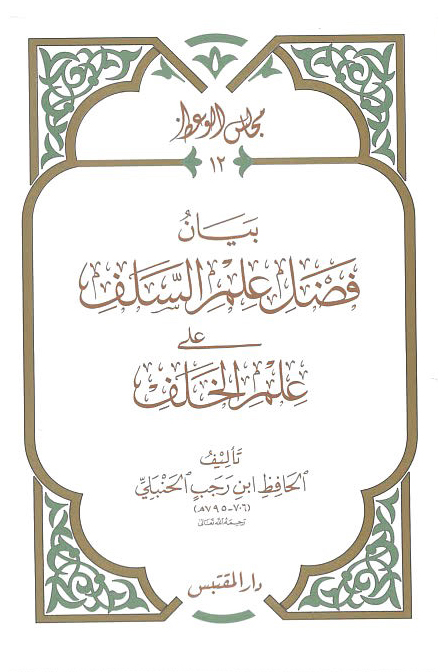 مجالس الوعظ
١٢
بَيَانُ
فَضْلِ عِلْمِ السَّلَفِ
عَلَى
عِلْمِ الخَلَفِ
تَأْلِيْفُ
الحَافِظِ ابْنِ رَجَبٍ الحَنْبَلِيِّ
(٧٠٦-٧٩٥هـ)
رحمه الله تعالى
دار المقتبس